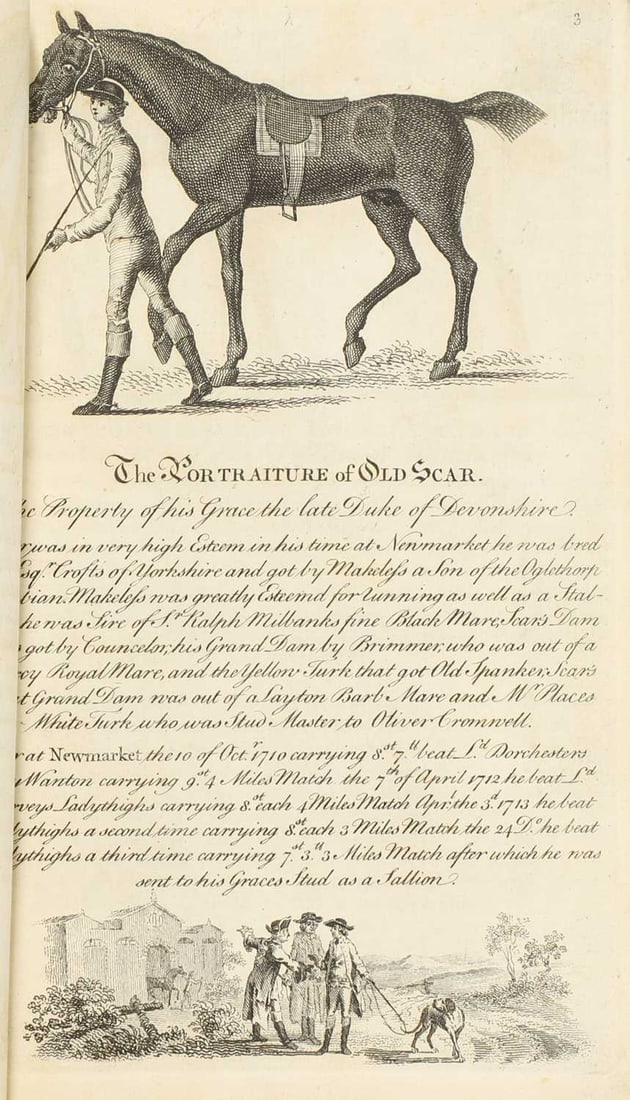 3
The PORTRAITURE of OLD SCAR.
he Property of his Grace the late Duke of Devonshire.
r, was in very high Esteem in his time at Newmarket he was bred
Esqr. Crofts of Yorkshire and got by Makeless a Son of the Oglethorp
bian. Makeless was greatly Esteemd for running as well as a Stal-
he was Sire of Sr. Ralph Milbanks fine Black Mare, Scar's Dam
got by Councelor, his Grand Dam by Brimmer, who was out of a
cy Royal Mare, and the Yellow Turk that got Old Spanker, Scars
t Grand Dam was out of a Layton Barb Mare and Mr. Places
White Turk who was Stud Master to Oliver Cromwell.
r at Newmarket the 10 of Octr. 1710 carrying 8st. 7ll. beat Ld. Dorchesters
Wanton carrying 9st. 4 Miles Match the 7th of April 1712 he beat Ld.
rveys Ladythighs carrying 8st. each 4 Miles Match Aprl. the 3d. 1713 he beat
ythighs a second time carrying 8st. each 3 Miles Match the 24 Do. he beat
ythighs a third time carrying 7st. 3ll. 3 Miles Match after which he was
sent to his Graces Stud as a Sallion.